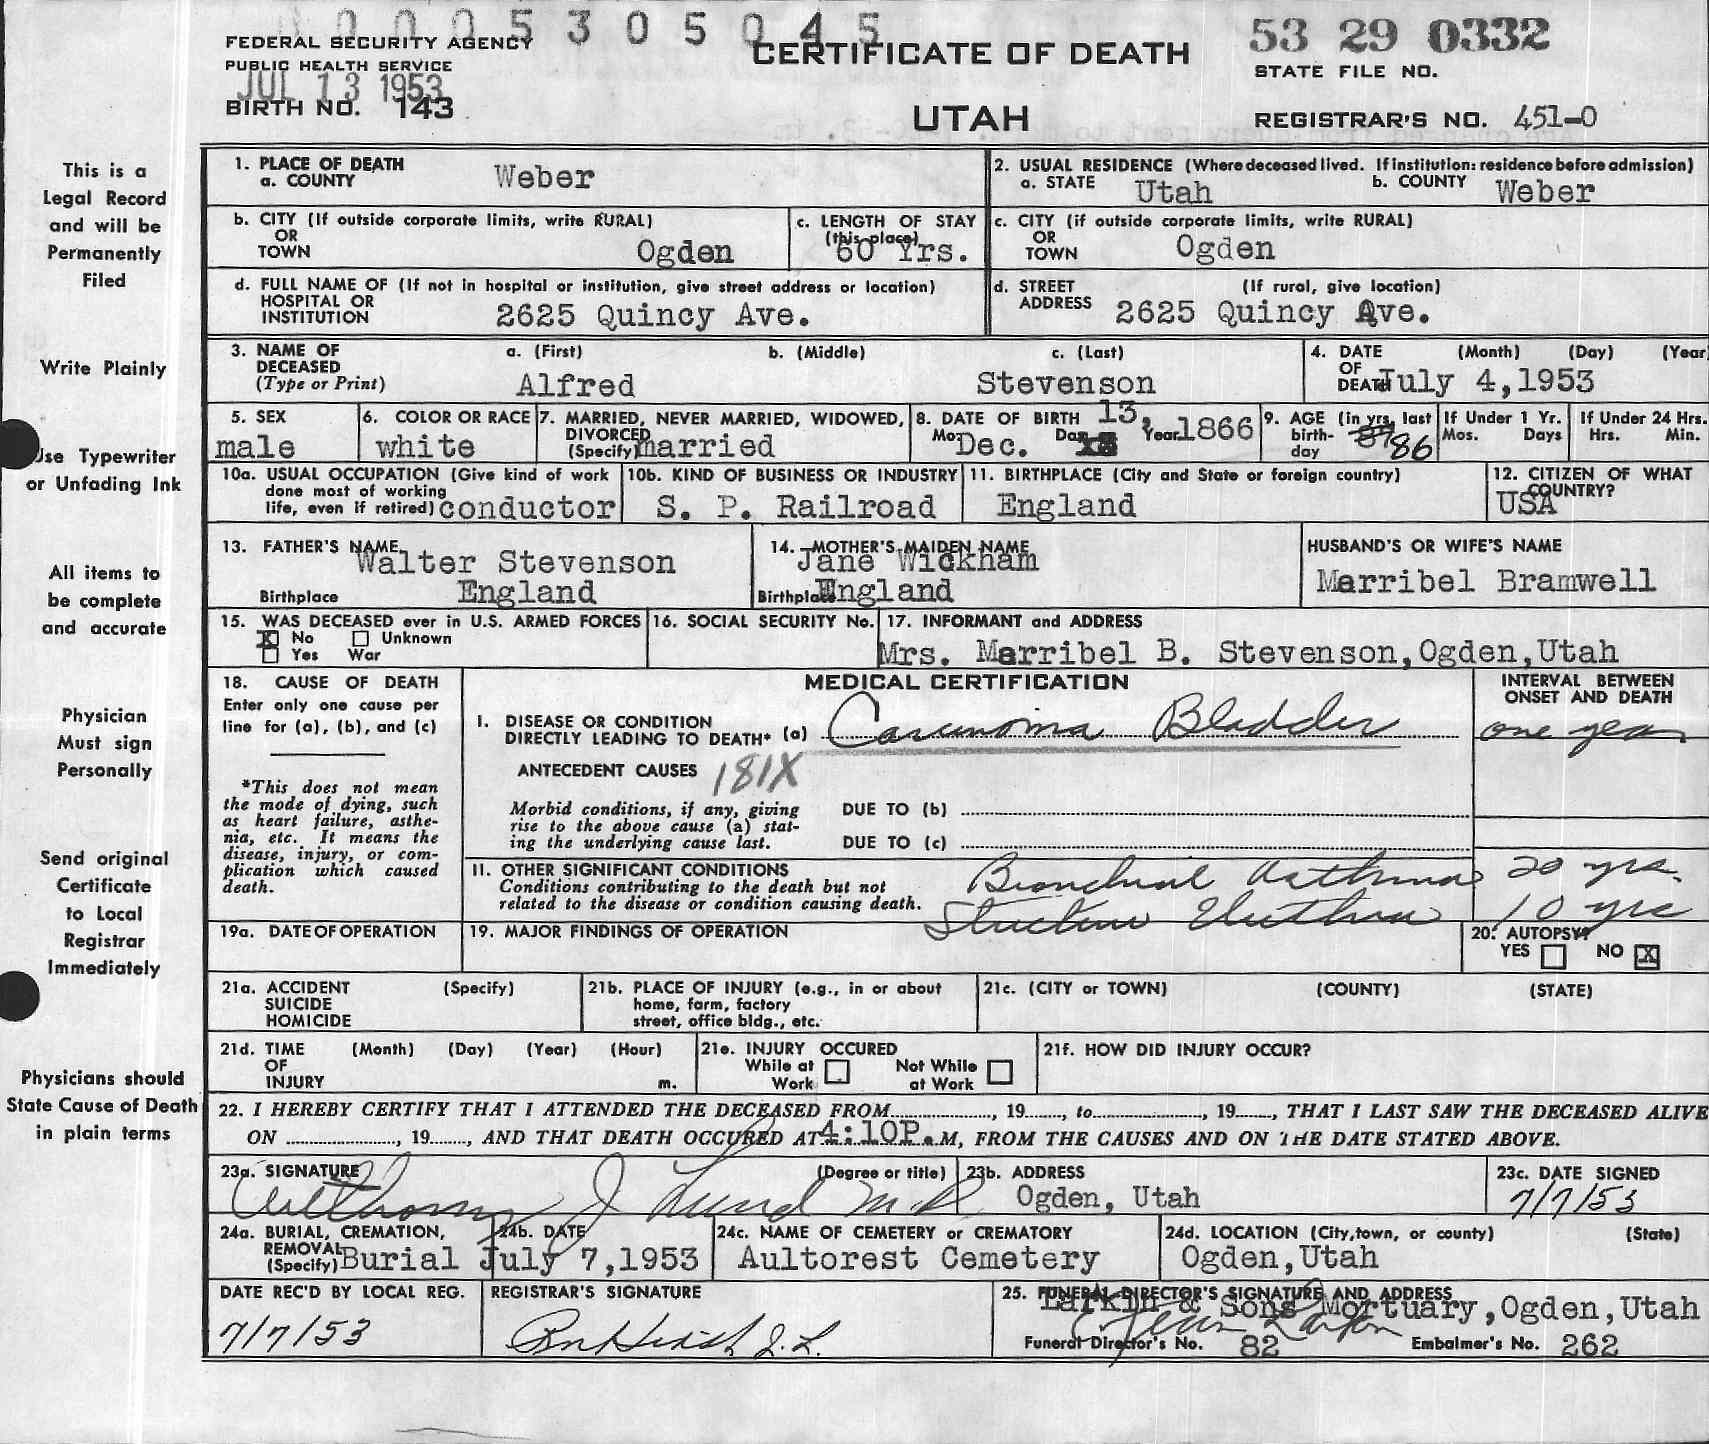 0005305045
FEDERAL SECURITY AGENCY
PUBLIC HEALTH SERVICE
JUL 13 1953
BIRTH NO. 143
CERTIFICATE OF DEATH
UTAH
53 29 0332
STATE FILE NO.
REGISTRAR'S NO. 451-0
This is a
Legal Record
and will be
Permanently
Filed
Write Plainly
Use Typewriter
or Unfading Ink
All items to
be complete
and accurate
Physician
Must sign
Personally
Send original
Certificate
to Local
Registrar
Immediately
Physicians should
State Cause of Death
in plain terms
1. PLACE OF DEATH
a. COUNTY Weber
2. USUAL RESIDENCE (Where deceased lived. If institution: residence before admission)
a. STATE Utah b. COUNTY Weber
b. CITY (If outside corporate limits, write RURAL)
OR
TOWN Ogden
c. LENGTH OF STAY
(this place)
60 Yrs.
c. CITY (if outside corporate limits, write RURAL)
OR
TOWN Ogden
d. FULL NAME OF (If not in hospital or institution, give street address or location)
HOSPITAL OR
INSTITUTION 2625 Quincy Ave.
d. STREET (If rural, give location)
ADDRESS 2625 Quincy Ave.
3. NAME OF a. (First) b. (Middle) c. (Last)
DECEASED
(Type or Print) Alfred Stevenson
4. DATE (Month) (Day) (Year
OF
DEATH July 4,1953
5. SEX
male
6. COLOR OR RACE
white
7. MARRIED, NEVER MARRIED, WIDOWED,
DIVORCED
(Specify) married
8. DATE OF BIRTH 13,
Mo. Dec. Day Year 1866
9. AGE (in yrs. last
birth-
day 87 86
If Under 1 Yr.
Mos. Days
If Under 24 Hrs.
Hrs. Min.
10a. USUAL OCCUPATION (Give kind of work
done most of working
life, even if retired) conductor
10b. KIND OF BUSINESS OR INDUSTRY
S. P. Railroad
11. BIRTHPLACE (City and State or foreign country)
England
12. CITIZEN OF WHAT
COUNTRY?
USA
13. FATHER'S NAME
Walter Stevenson
Birthplace England
14. MOTHER'S MAIDEN NAME
Jane Wickham
Birthplace England
HUSBAND'S OR WIFE'S NAME
Marribel Bramwell
15. WAS DECEASED ever in U.S. ARMED FORCES
X No Unknown
Yes War
16. SOCIAL SECURITY No.
17. INFORMANT and ADDRESS
Mrs. Marribel B. Stevenson,Ogden,Utah
18. CAUSE OF DEATH
Enter only one cause per
line for (a), (b), and (c)
*This does not mean
the mode of dying, such
as heart failure, asthe-
nia, etc. It means the
disease, injury, or com-
plication which caused
death.
MEDICAL CERTIFICATION
INTERVAL BETWEEN
ONSET AND DEATH
I. DISEASE OR CONDITION
DIRECTLY LEADING TO DEATH* (a) Carcinoma Bladder one year
ANTECEDENT CAUSES 181X
Morbid conditions, if any, giving
rise to the above cause (a) stat-
ing the underlying cause last.
DUE TO (b)
DUE TO (c)
11. OTHER SIGNIFICANT CONDITIONS
Conditions contributing to the death but not
related to the disease or condition causing death.
Bronchial Asthma 20 yrs.
Stricture Urethra 10 yrs
19a. DATE OF OPERATION
19. MAJOR FINDINGS OF OPERATION
20. AUTOPSY?
YES NO X
21a. ACCIDENT (Specify)
SUICIDE
HOMICIDE
21b. PLACE OF INJURY (e.g., in or about
home, farm, factory
street, office bldg., etc.
21c. (CITY or TOWN) (COUNTY) (STATE)
21d. TIME (Month) (Day) (Year) (Hour)
OF
INJURY m.
21e. INJURY OCCURED
While at Work Not While at Work
21f. HOW DID INJURY OCCUR?
22. I HEREBY CERTIFY THAT I ATTENDED THE DECEASED FROM............, 19......, to............, 19......, THAT I LAST SAW THE DECEASED ALIVE
ON ............, 19......, AND THAT DEATH OCCURED AT 4:10P.M, FROM THE CAUSES AND ON THE DATE STATED ABOVE.
23a. SIGNATURE (Degree or title)
Anthony J Lund M.D.
23b. ADDRESS
Ogden, Utah
23c. DATE SIGNED
7/7/53
24a. BURIAL, CREMATION,
REMOVAL
(Specify) Burial
24b. DATE
July 7,1953
24c. NAME OF CEMETERY or CREMATORY
Aultorest Cemetery
24d. LOCATION (City,town, or county) (State)
Ogden,Utah
DATE REC'D BY LOCAL REG.
7/7/53
REGISTRAR'S SIGNATURE
25. FUNERAL DIRECTOR'S SIGNATURE AND ADDRESS
Larkin & Sons Mortuary,Ogden,Utah
Funeral Director's No. 82 Embalmer's No. 262